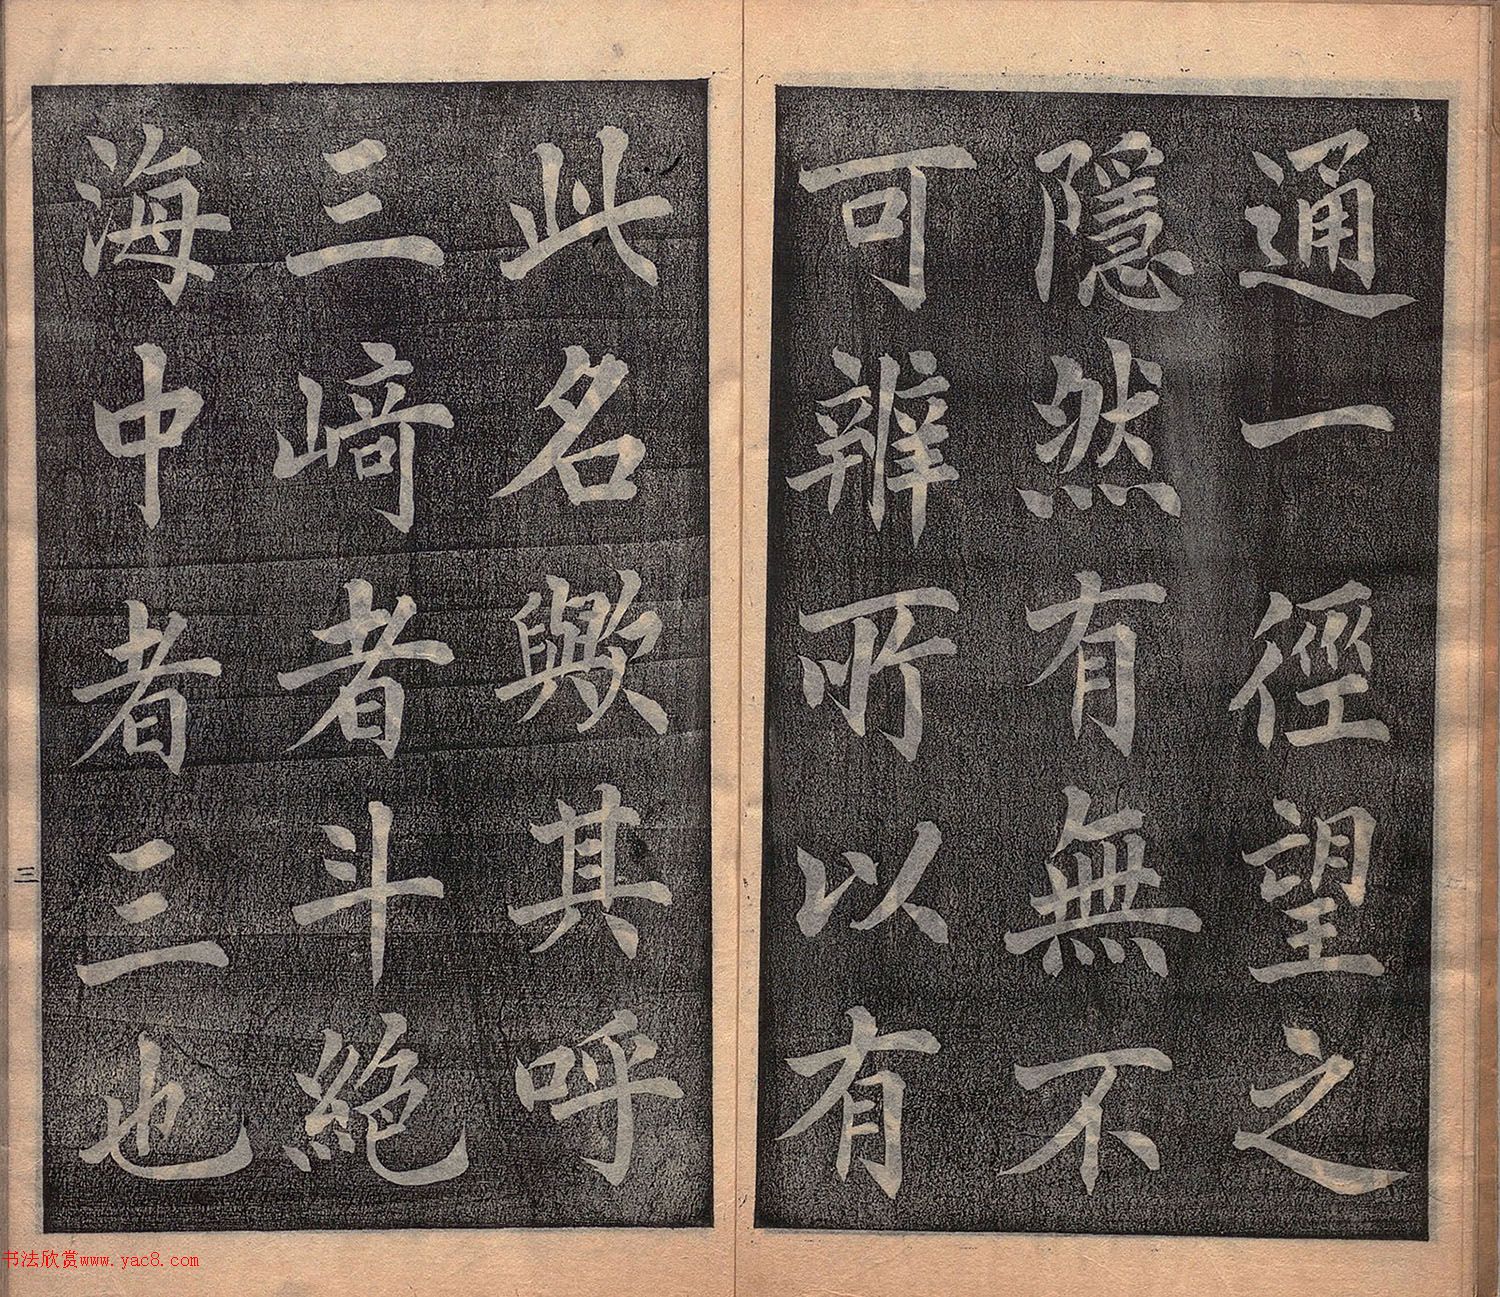 通一徑望之
隱然有無不
可辨所以有
此名歟其呼
三﨑者斗絶
海中者三也
三
书法欣赏www.yac8.com